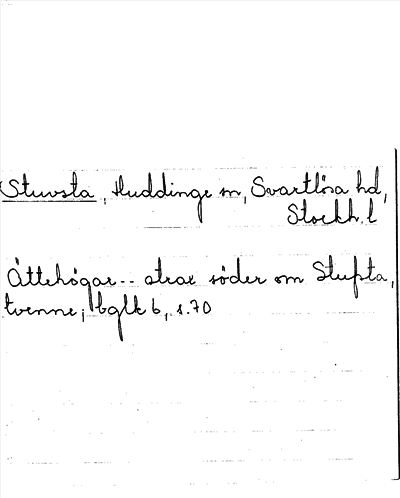 Stuvsta, Huddinge sn, Svartlösa hd,
Stockh. l
Ättehögar.. strax söder om Stufsta,
tvenne; bglk 6, s. 70